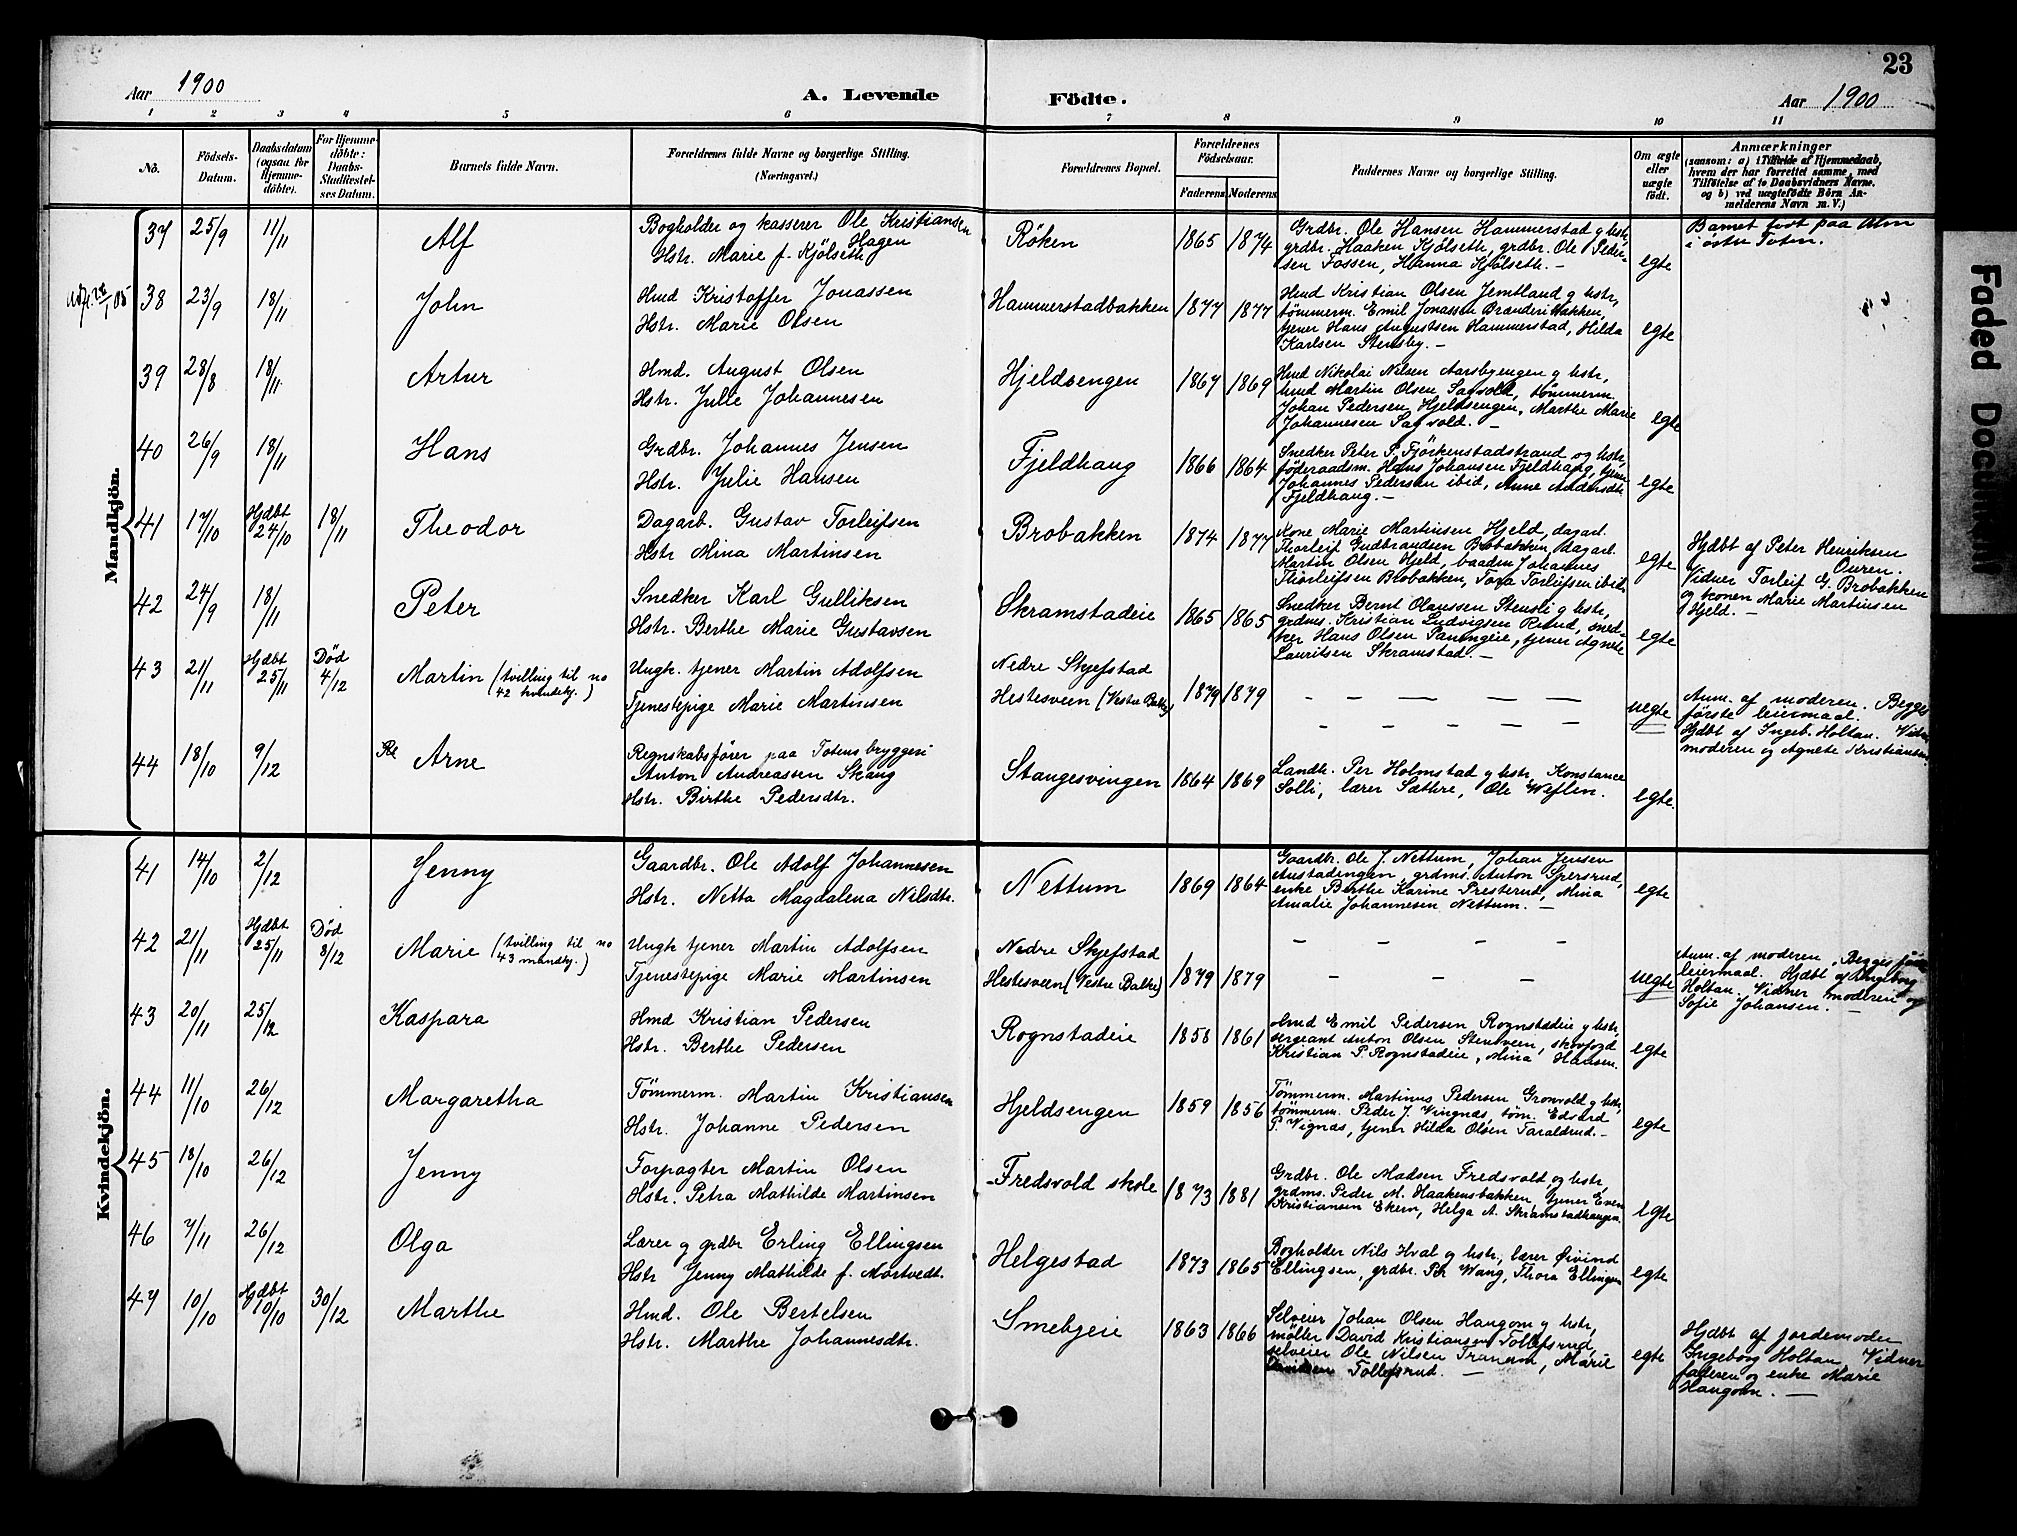 23
Aar 1900
A. Levende Födte.
Aar 1900
1 2 3 4 5 6 7 8 9 10 11
No.
Födsels-Datum.
Daabsdatum (ogsaa for Hjemmedöbte).
For Hjemmedöbte: Daabs-Stadfæstelses Datum.
Barnets fulde Navn.
Forældrenes fulde Navne og borgerlige Stilling. (Næringsvei.)
Forældrenes Bopæl.
Forældrenes Födselsaar.
Faderens Moderens
Faddernes Navne og borgerlige Stilling.
Om ægte eller uægte födt.
Anmærkninger
(saasom: a) i Tilfælde af Hjemmedaab,
hvem der har forrettet samme, med
Tilföielse af to Daabsvidners Navne,
og b) ved uægtefödte Börn An-
melderens Navn m. V.)
Mandkjön.
37 25/9 11/11 Alf
Bogholder og kasserer Ole Kristiansen Hagen
Hstr. Marie f. Kjölseth
Röken 1865 1874
Grdbr. Ole Hansen Hammerstad g hstr,
grdbr. Haaken Kjölseth, grdbr. Ole Peder-
sen Fossen, Hanna Kjölseth. –
egte
Barnet født paa Alm
i östre Toten.
38 23/9 18/11 John
Hmd Kristoffer Jonassen
Hstr. Marie Olsen
Hammerstadbakken 1877 1877
Hmd Kristian Olsen Jemtland g hstr,
tömmerm. Emil Jonassen Branderibakken,
tjener Hans Augustsen Hammerstad, Hilda
Karlsen Stensby. –
egte
39 28/8 18/11 Artur
Hmd. August Olsen
Hstr. Julie Johannesen
Hjeldsengen 1867 1869
Hmd Nikolai Nilsen Aarsbyengen g hstr,
hmd Martin Olsen Sagvold, tömmerm.
Johan Pedersen Hjeldsengen, Marthe Marie
Johannesen Sagvold. –
egte
40 26/9 18/11 Hans
Grdbr. Johannes Jensen
Hstr. Julie Hansen
Fjeldhaug 1866 1864
Snedker Peter P. Fjörkenstadstrand og hstr,
föderaadsm. Hans Johansen Fjeldhaug, tjener
Johannes Pedersen ibid, Anne Andersdtr
Fjeldhaug. –
egte
41 17/10 Hjdbt 24/10 18/11 Theodor
Dagarb. Gustav Torleifsen
Hstr Mina Martinsen
Brobakken 1874 1877
Kone Marie Martinsen Hjeld, dagarb.
Thorleif Gudbrandsen Brobakken, dagarb.
Martin Olsen Hjeld, baadm Johannes
Thorleifsen Brobakken, Tora Torleifsen ibid.
egte
Hjdbt af Peter Henriksen
Ouren.
Vidner Torleif G. Brobakken
og konen Marie Martinsen
Hjeld. –
42 24/9 18/11 Peter
Snedker Karl Gulliksen
Hstr. Berthe Marie Gustavsen
Skramstadeie 1865 1865
Snedker Bernt Olaussen Stensli g hstr,
grdms. Kristian Ludvigsen Rund, sned-
ker Hans Olsen Panengeie, tjener Agnete
Lauritsen Skramstad. –
egte
43 21/11 Hjdbt 25/11 Död 4/12 Martin (tvilling til no
42 kvindekj.)
Ungk. tjener Martin Adolfsen
Tjenestepige Marie Martinsen
Nedre Skjefstad
Hestesveen (Vestre Balke) 1879 1879
uegte
Anm. af moderen. Begges
förste leiermaal.
Hjdbt af Ingeb. Holtan. Vidner
moderen og Agnete Kristiansen.
44 18/10 9/12 Arne
Regnskabsförer paa Totens bryggeri
Anton Andreassen Skaug
Hstr. Birthe Pedersdtr.
Stangesvingen 1864 1869
Landh. Per Holmstad g hstr, Konstance
Solli, lærer Sæthre, Ole Weflen.
egte
Kvindekjön.
41 14/10 2/12 Jenny
Gaardbr. Ole Adolf Johannesen
Hstr. Netta Magdalena Nilsdtr.
Nettum 1869 1864
Gaardbr. Ole J. Nettum, Johan Jensen
Austadengen, grdms. Anton Spersrud,
enke Berthe Karine Presterud, Mina
Amalie Johannesen Nettum. –
egte
42 21/11 Hjdbt 25/11 Död 8/12 Marie (tvilling til no
43 mandkj.)
Ungk tjener Martin Adolfsen
Tjenestepige Marie Martinsen
Nedre Skjefstad
Hestesveen (Vestre Balke) 1879 1879
uegte
Anm. af moderen. Begges förste
leiermaal. Hjdbt af Ingeborg
Holtan. Vidner moderen og
Sofie Johansen. –
43 20/11 25/12 Kaspara
Hmd Kristian Pedersen
Hstr. Berthe Pedersen
Rognstadeie 1858 1861
Hmd Emil Pedersen Rognstadeie g hstr,
sergeant Anton Olsen Stenveen, skovfogd
Kristian P. Rognstadeie, Mina Hansen.
egte
44 11/10 26/12 Margaretha
Tömmerm. Martin Kristiansen
Hstr. Johanne Pedersen
Hjeldsengen 1859 1856
Tömmerm. Martinus Pedersen Gronvold g hstr,
tömmerm. Peder J. Vingnæs, töm. Edvard
P. Vignæs, tjener Hilda Olsen Taraldrud. –
egte
45 18/10 26/12 Jenny
Forpagter Martin Olsen
Hstr. Petra Mathilde Martinsen
Fredsvold skole 1873 1881
Grdbr. Ole Madsen Fredsvold og hstr,
grdms. Peder M. Haakensbakken, tjener Even
Kristiansen Ekern, Helga A. Skramstadhaugen.
egte
46 7/11 26/12 Olga
Lærer g grdbr Erling Ellingsen
Hstr Jenny Mathilde f. Mortvedt.
Helgestad 1873 1865
Bogholder Nils Hval g hstr, lærer Öivind
Ellingsen, grdbr. Per Wang, Thora Ellingsen
egte
47 10/10 Hjdbt 10/10 30/12 Marthe
Hmd. Ole Bertelsen
Hstr. Marthe Johannesdtr.
Smebyeie 1863 1866
Selveier Johan Olsen Haugom g hstr,
möller David Kristiansen Tollefsrud,
selveier Ole Nilsen Tranum, Marie
Tollefsrud. –
egte
Hjdbt af jordemoder
Ingeborg Holtan. Vidner
faderen og enke Marie
Haugom. –
Faded Document